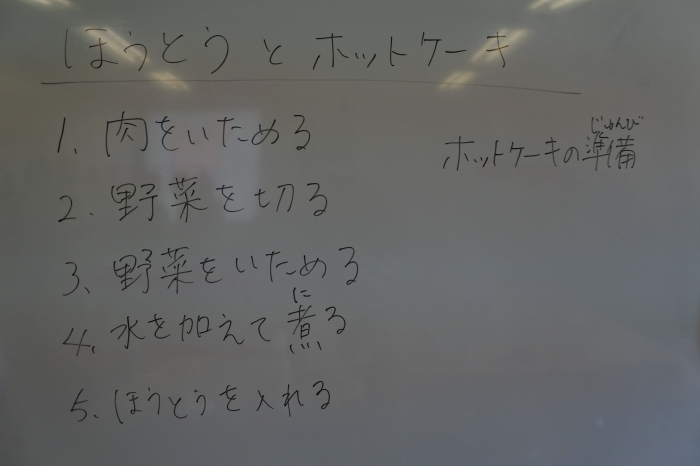 ほうとう と ホットケーキ
1、肉をいためる
2、野菜を切る
3、野菜をいためる
に
4、水を加えて煮る
5、ほうとうを入れる
じゅんび
ホットケーキの準備